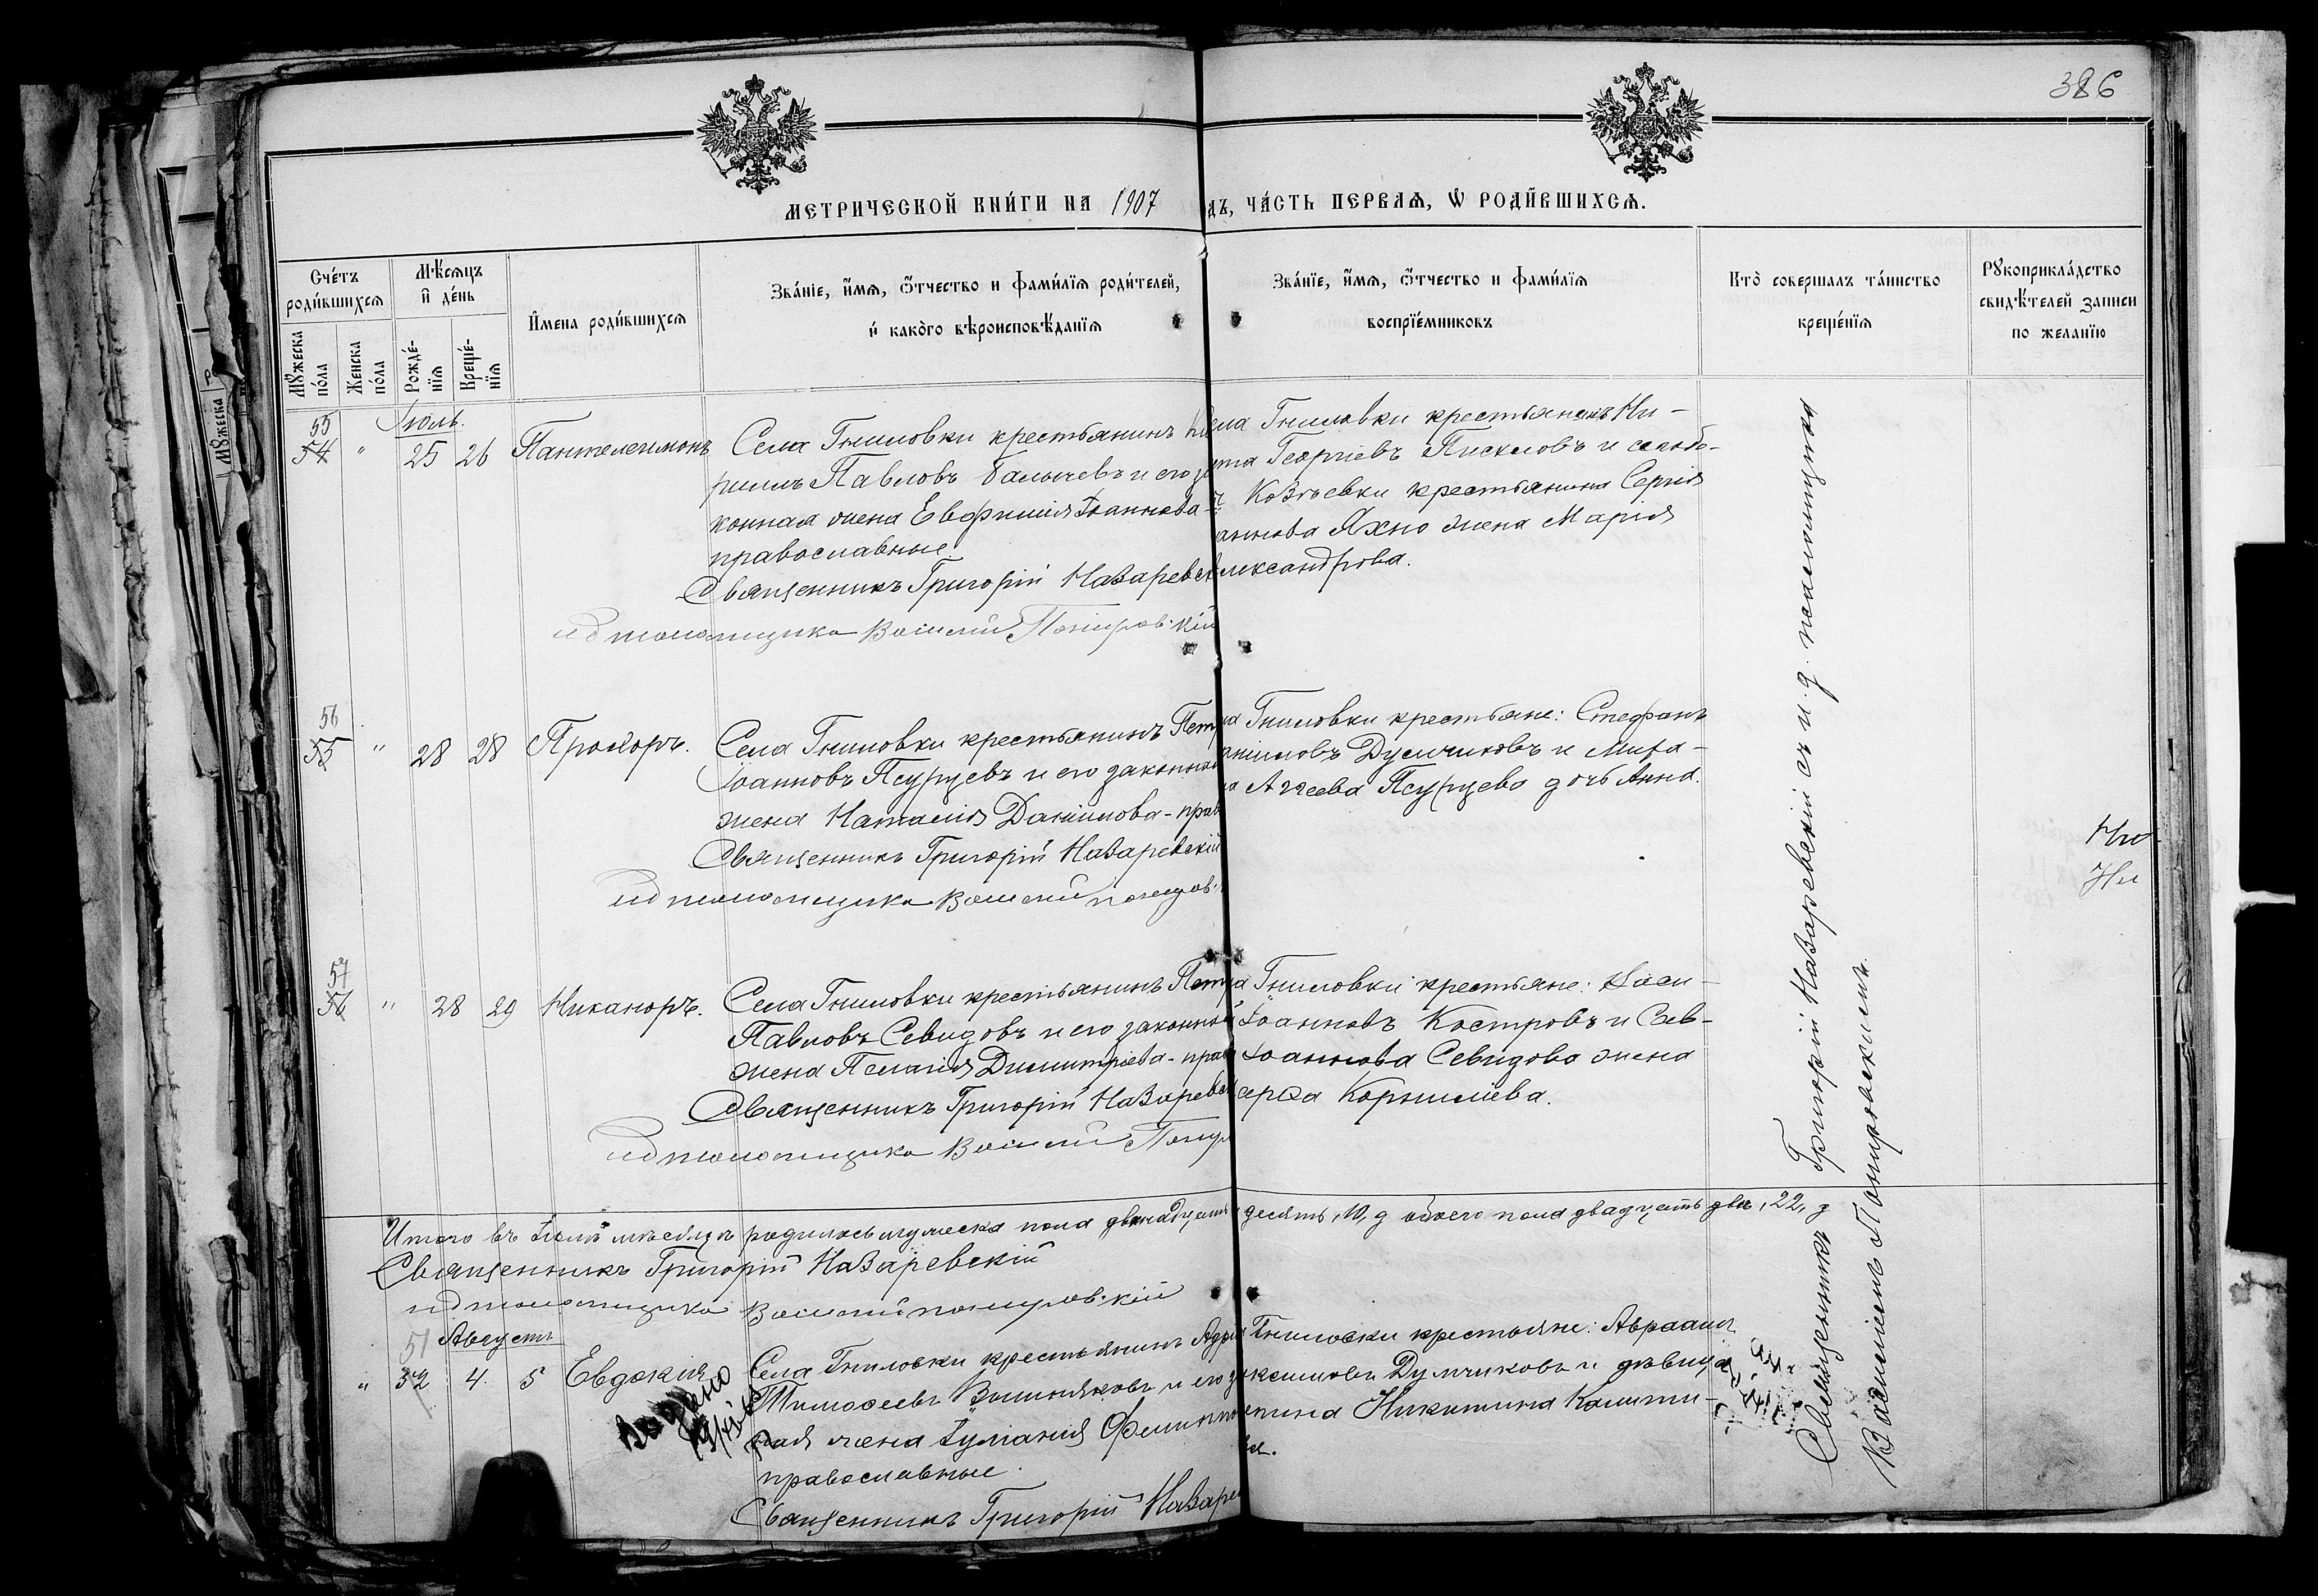 386
МЕТРИЧЕСКОЙ КНИ́ГИ НА 1907
дъ, ЧА́СТЬ ПЕРВАѦ, Ѡ РОДИ́ВШИХСѦ.
Сче́тъ роди́вшихсѧ
Мꙋжеска по́ла
Женска по́ла
Мѣ́сѧцъ и҆ де́нь
Рожде́-нїѧ
Креще́-нїѧ
И҆мена роди́вшихсѧ
Зва́нїе, и҆́мѧ, ѻ҆́тчество и фами́лїѧ роди́телей,
и҆ како́го вѣроисповѣ́данїѧ
Зва́нїе, и҆́мѧ, ѻ҆́тчество и фами́лїѧ
воспрїе́мниковъ
Кто̀ совершалъ та́инство
креще́нїѧ
Рꙋкоприкла́дство
свидѣ́телей записи
по желанїю
Мꙋжеска
Іюль.
55
54 " 25 26 Пантелеимонъ
Села Гниловки крестьянинъ
Павловъ Балычевъ и его
конная жена Евфимія Іоаннова
православные.
Священникъ Григорій Назаревск
ид псаломщика Василій Понировскій
Гниловки крестьянинъ Ни-
Георгіевъ Пискловъ и слобо-
Козьевки крестьянина Сергія
аннова Яхно жена Марія
лександрова.
56
55 " 28 28 Прохоръ.
Села Гниловки крестьянинъ Петр
Іоанновъ Псурцевъ и его законная
жена Наталія Даниилова - прав
Священникъ Григорій Назаревскій
ид псаломщика Василій Понировс
Гниловки крестьяне: Стефанъ
Думчиковъ и Миха-
Аггеева Псурцева дочь Анна.
57
56 " 28 29 Никаноръ.
Села Гниловки крестьянинъ Петр
Павловъ Севидовъ и его законная
жена Пелагія Димитріева - прав
Священникъ Григорій Назаревск
ид псаломщика Василій Понир
Гниловки крестьяне: Васи-
Іоанновъ Костровъ и Сав-
Іоаннова Севидова жена
арѳа Корнилиева.
Итого въ Іюлѣ мѣсяцѣ родилось мужеска пола двѣнадцать
десять, 10, а обоего пола двадцать два, 22,
Священникъ Григорій Назаревскій
ид псаломщика Василій Понировскій
Августъ
51
" 32 4 5 Евдокія
Села Гниловки крестьянинъ Адрі
Тимоѳеевъ Вишняковъ и его з
ная жена Іуліанія Филиппо
православные.
Священникъ Григорій Назаре
Гниловки крестьяне: Авраамъ
ксимовъ Думчиковъ и дѣвица
Никитина Калити-
ва.
Священникъ Григорій Назаревскій съ и. д. псаломщика
Василіемъ Понировскимъ.